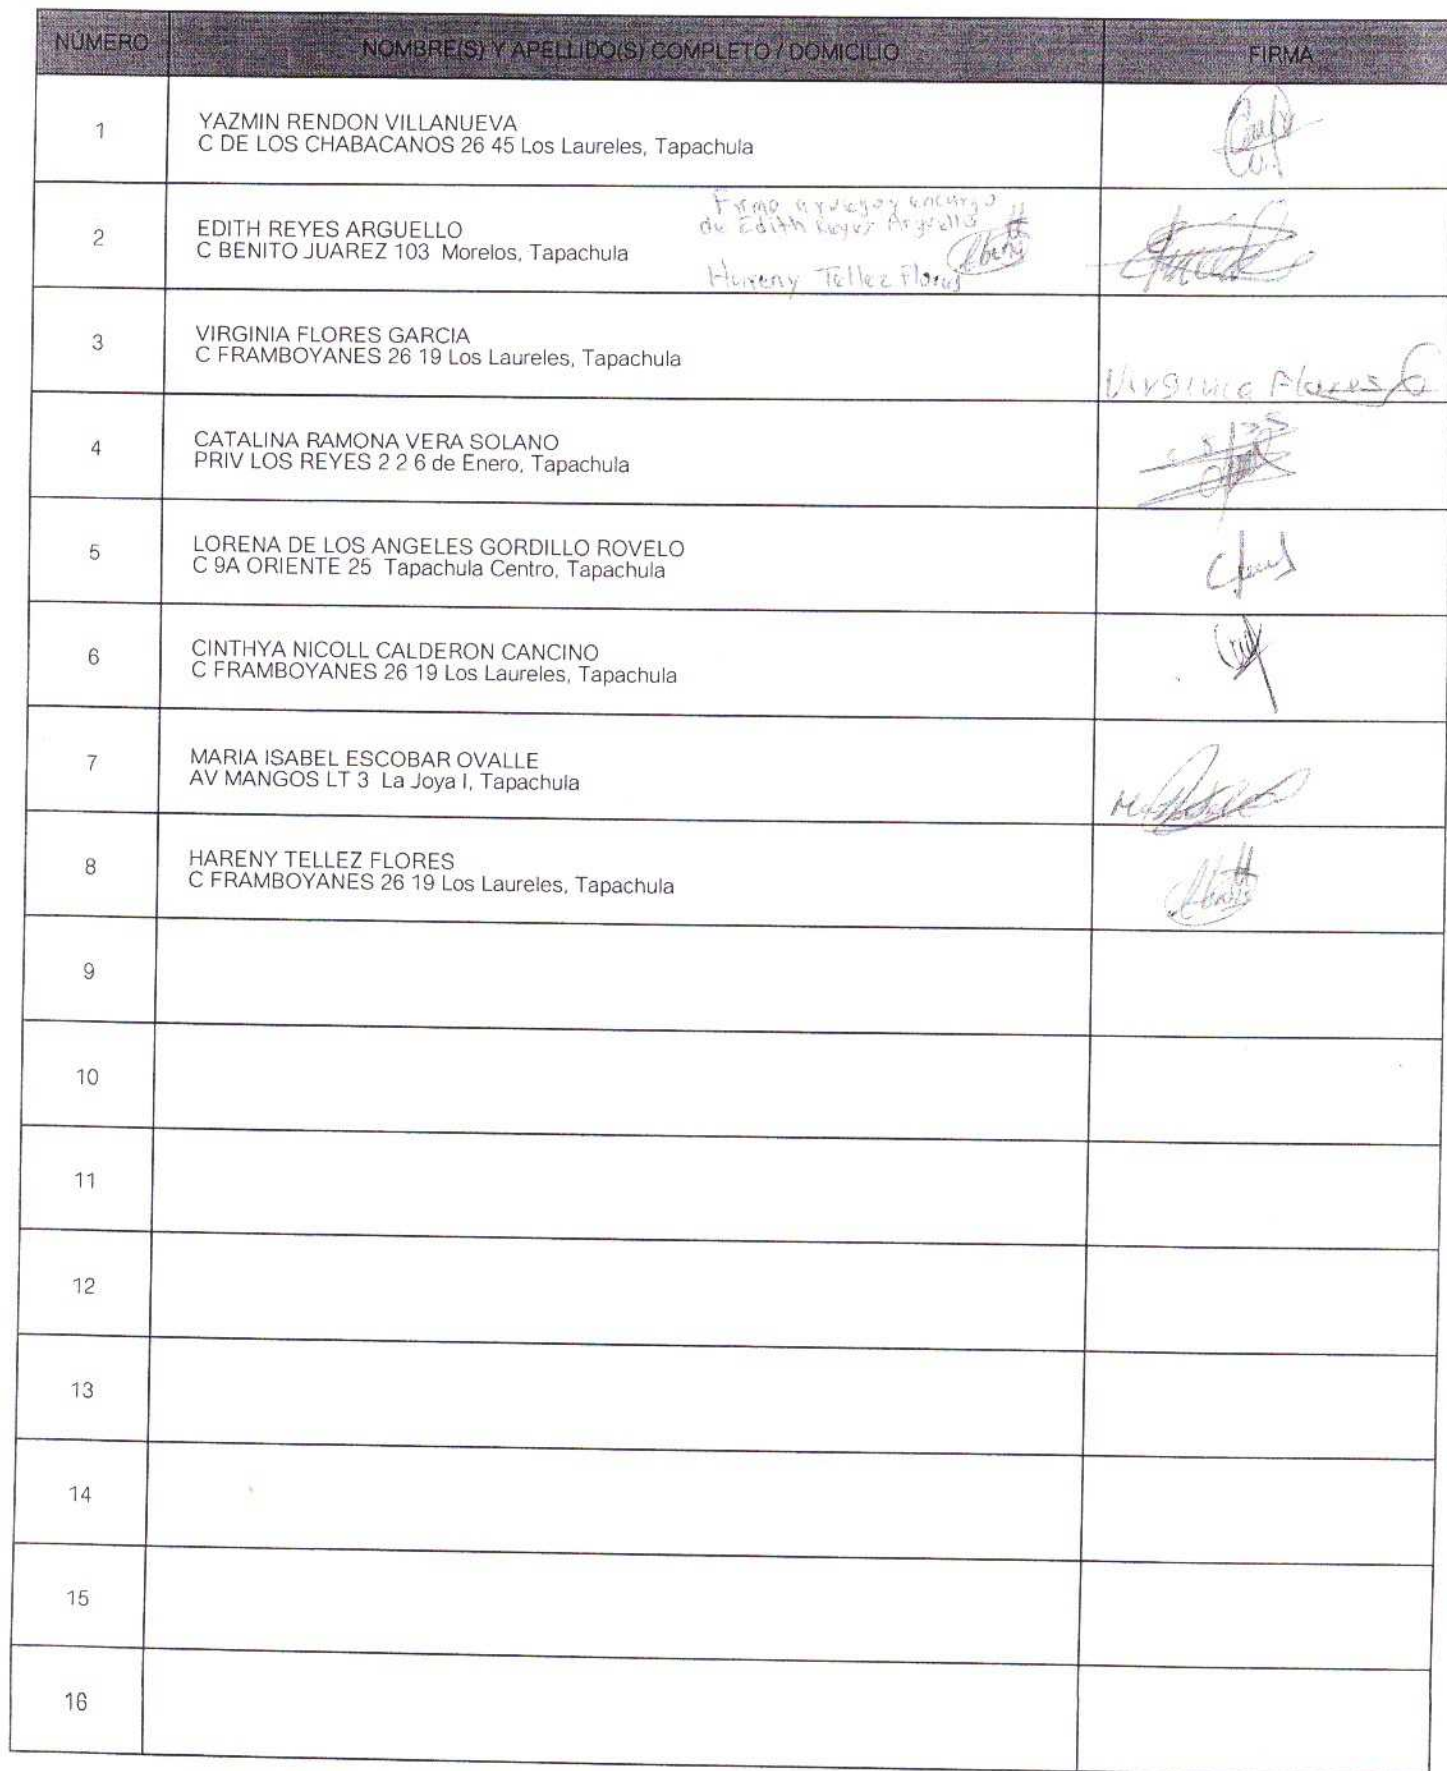 NÚMERO NOMBRE(S) Y APELLIDO(S) COMPLETO / DOMICILIO FIRMA
1 YAZMIN RENDON VILLANUEVA
C DE LOS CHABACANOS 26 45 Los Laureles, Tapachula
2 EDITH REYES ARGUELLO
C BENITO JUAREZ 103 Morelos, Tapachula
Firmo a ruego y encargo
de Edith Reyes Arguello
Hareny Tellez Flores
3 VIRGINIA FLORES GARCIA
C FRAMBOYANES 26 19 Los Laureles, Tapachula
Virginia Flores G
4 CATALINA RAMONA VERA SOLANO
PRIV LOS REYES 2 2 6 de Enero, Tapachula
5 LORENA DE LOS ANGELES GORDILLO ROVELO
C 9A ORIENTE 25 Tapachula Centro, Tapachula
6 CINTHYA NICOLL CALDERON CANCINO
C FRAMBOYANES 26 19 Los Laureles, Tapachula
7 MARIA ISABEL ESCOBAR OVALLE
AV MANGOS LT 3 La Joya I, Tapachula
8 HARENY TELLEZ FLORES
C FRAMBOYANES 26 19 Los Laureles, Tapachula
9
10
11
12
13
14
15
16